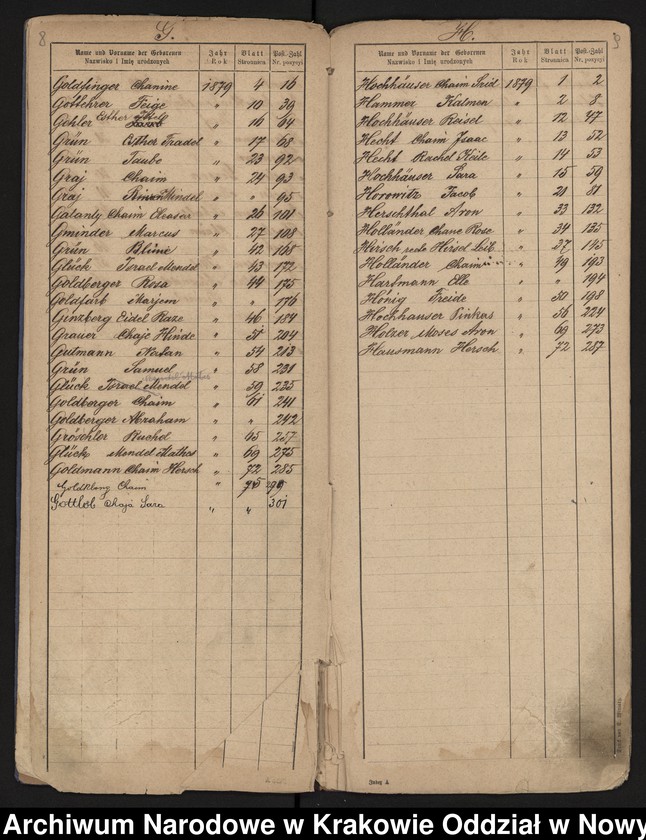 8
G.
Name und Vorname der Geborenen Jahr Blatt Post-Zahl
Nazwisko i Imię urodzonych Rok Stronnica Nr. pozycyi
Goldfinger Chanine 1879 4 16
Gottehrer Feige " 10 39
Gehler Esther " 16 64
Grün Esther Fradel " 17 68
Grün Taube " 23 92
Graj Chaim " 24 93
Graj Mendel " " 95
Galanty Chaim Eleaser " 26 101
Gminder Marcus " 27 108
Grün Blüme " 42 168
Glück Israel Mendel " 43 172
Goldberger Rosa " 44 175
Goldfarb Marjem " " 176
Ginzberg Eidel Raze " 46 184
Grauer Chaje Hinde " 51 204
Gutmann Natan " 54 213
Grün Samuel " 58 231
Glück Israel Mendel " 59 235
Goldberger Chaim " 61 241
Goldberger Abraham " " 242
Gröschler Ruchel " 65 257
Glück Mendel Mathes " 69 275
Goldmann Chaim Hersch " 72 285
Goldklang Chaim " 75
Gottlob Chaja Sara " " 301
9
H.
Name und Vorname der Geborenen Jahr Blatt Post-Zahl
Nazwisko i Imię urodzonych Rok Stronnica Nr. pozycyi
Hochhäuser Chaim 1879 1 2
Hammer Kalmen " 2 8
Hochhäuser Reisel " 12 47
Hecht Chaim Isaac " 13 52
Hecht Rachel Keile " 14 53
Hochhäuser Sara " 15 59
Horowitz Jacob " 21 81
Herschthal Aron " 33 132
Holländer Chane Rose " 34 135
Hersch rede Hersel Leib " 37 145
Holländer Chaim " 49 193
Hartmann Elle " " 194
Hönig Freide " 50 198
Hochhauser Pinkas " 56 224
Holzer Moses Aron " 69 273
Hausmann Hersch " 72 287
Index A
Archiwum Narodowe w Krakowie Oddział w Nowy